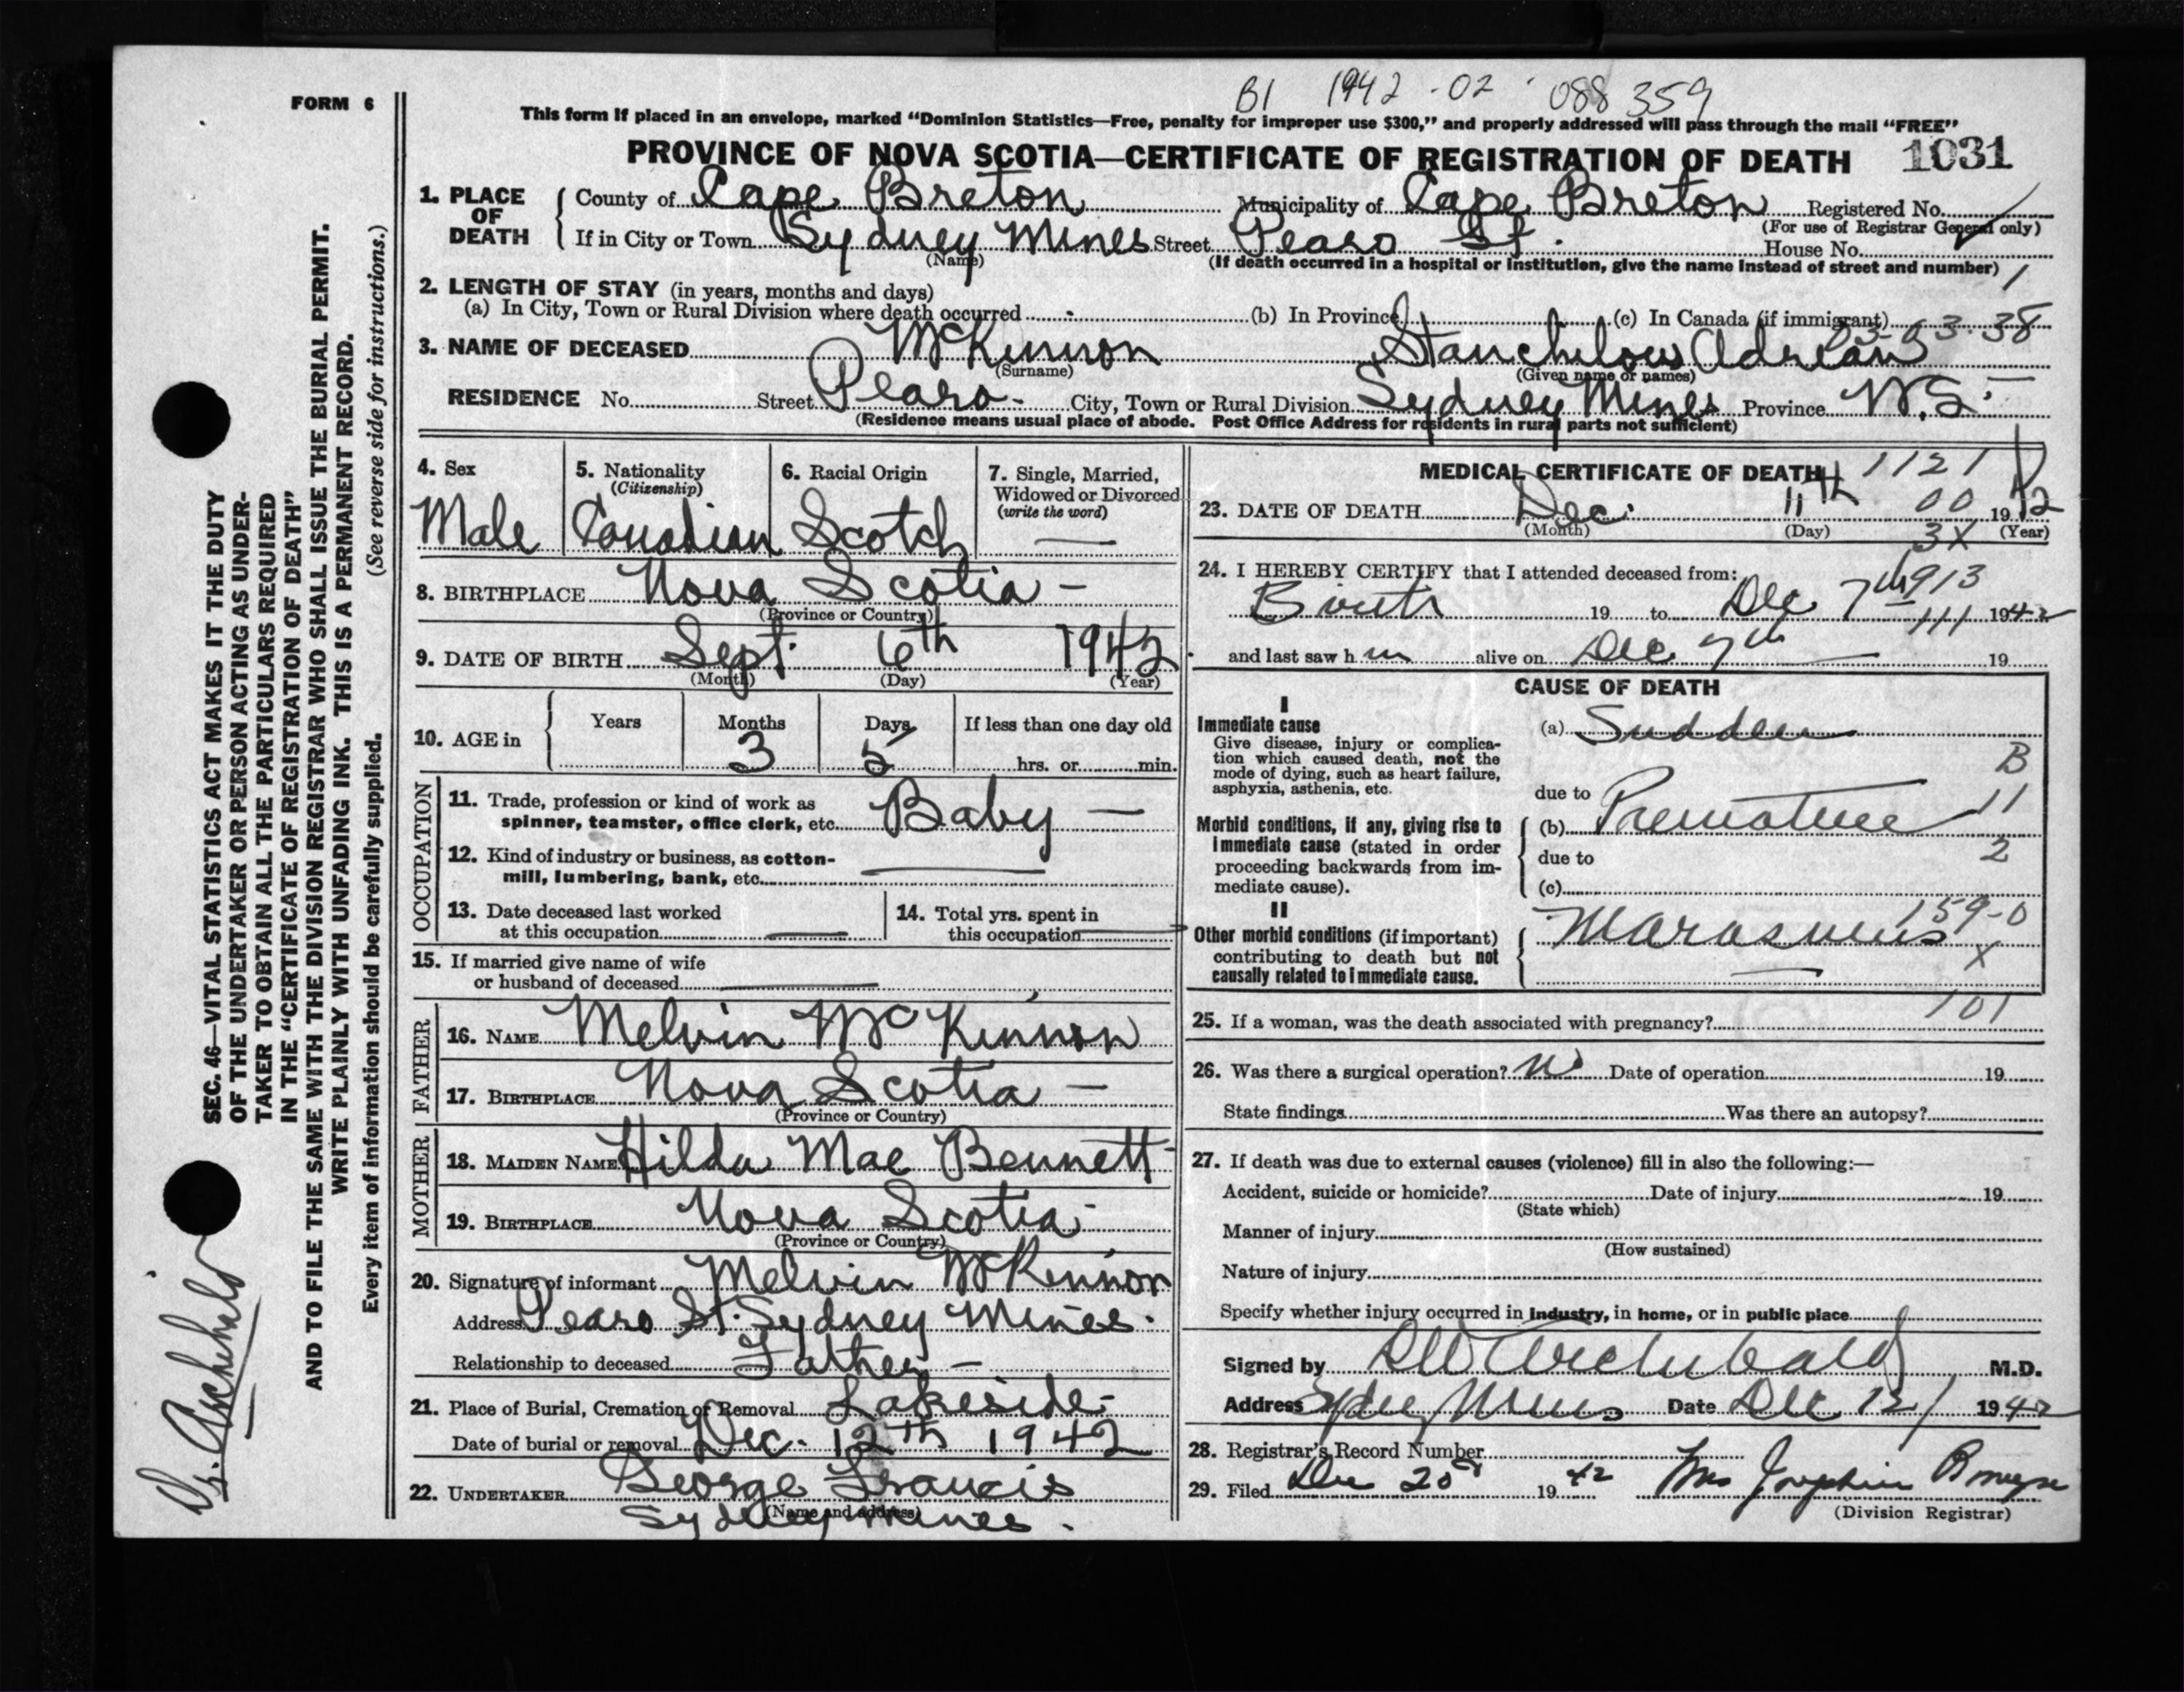 B1 1942-02-088359
FORM 6
This form if placed in an envelope, marked “Dominion Statistics—Free, penalty for improper use $300,” and properly addressed will pass through the mail “FREE”
PROVINCE OF NOVA SCOTIA—CERTIFICATE OF REGISTRATION OF DEATH 1031
1. PLACE OF DEATH
County of Cape Breton Municipality of Cape Breton Registered No.
(For use of Registrar General only)
If in City or Town Sydney Mines Street Pearo St. House No.
(Name)
(If death occurred in a hospital or institution, give the name instead of street and number) 1
2. LENGTH OF STAY (in years, months and days)
(a) In City, Town or Rural Division where death occurred (b) In Province (c) In Canada (if immigrant)
3. NAME OF DECEASED McKinnon Stanchlous Adrean
(Surname) (Given name or names)
RESIDENCE No. Street Pearo. City, Town or Rural Division Sydney Mines Province N.S.
(Residence means usual place of abode. Post Office Address for residents in rural parts not sufficient)
4. Sex
Male
5. Nationality
(Citizenship)
Canadian
6. Racial Origin
Scotch
7. Single, Married,
Widowed or Divorced
(write the word)
—
8. BIRTHPLACE Nova Scotia –
(Province or Country)
9. DATE OF BIRTH Sept. 6th 1942
(Month) (Day) (Year)
10. AGE in
Years Months Days If less than one day old
3 5 hrs. or min.
OCCUPATION
11. Trade, profession or kind of work as
spinner, teamster, office clerk, etc. Baby —
12. Kind of industry or business, as cotton-
mill, lumbering, bank, etc.
13. Date deceased last worked
at this occupation
14. Total yrs. spent in
this occupation
15. If married give name of wife
or husband of deceased
FATHER
16. NAME Melvin McKinnon
17. BIRTHPLACE Nova Scotia —
(Province or Country)
MOTHER
18. MAIDEN NAME Hilda Mae Bennett
19. BIRTHPLACE Nova Scotia
(Province or Country)
20. Signature of informant Melvin McKinnon
Address Pearo St. Sydney Mines.
Relationship to deceased Father –
21. Place of Burial, Cremation or Removal Lakeside
Date of burial or removal Dec. 12th 1942
22. UNDERTAKER George Francis
(Name and address)
Sydney Mines.
MEDICAL CERTIFICATE OF DEATH 1121
23. DATE OF DEATH Dec. 11th 00 1942
(Month) (Day) 3X (Year)
24. I HEREBY CERTIFY that I attended deceased from: 913
Birth 19 to Dec 7th 111 1942
and last saw him alive on Dec 7th 19
CAUSE OF DEATH
I
Immediate cause
Give disease, injury or complica-
tion which caused death, not the
mode of dying, such as heart failure,
asphyxia, asthenia, etc.
(a) Sudden
B
due to 11
Morbid conditions, if any, giving rise to
immediate cause (stated in order
proceeding backwards from im-
mediate cause).
(b) Premature
due to 2
(c)
II
Other morbid conditions (if important)
contributing to death but not
causally related to immediate cause.
159-0
Marasmus
X
101
25. If a woman, was the death associated with pregnancy?
26. Was there a surgical operation? No Date of operation 19
State findings Was there an autopsy?
27. If death was due to external causes (violence) fill in also the following:—
Accident, suicide or homicide? Date of injury 19
(State which)
Manner of injury
(How sustained)
Nature of injury
Specify whether injury occurred in industry, in home, or in public place
Signed by Archibald M.D.
Address Sydney Mines Date Dec 12/ 1942
28. Registrar's Record Number
29. Filed Dec 20 1942 Mrs Josephine
(Division Registrar)
SEC. 46—VITAL STATISTICS ACT MAKES IT THE DUTY
OF THE UNDERTAKER OR PERSON ACTING AS UNDER-
TAKER TO OBTAIN ALL THE PARTICULARS REQUIRED
IN THE “CERTIFICATE OF REGISTRATION OF DEATH”
AND TO FILE THE SAME WITH THE DIVISION REGISTRAR WHO SHALL ISSUE THE BURIAL PERMIT.
WRITE PLAINLY WITH UNFADING INK. THIS IS A PERMANENT RECORD.
Every item of information should be carefully supplied. (See reverse side for instructions.)
Dr. Archibald